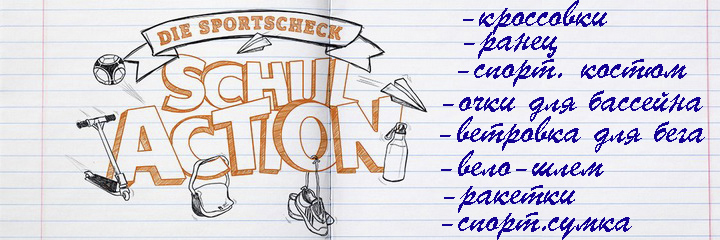 DIE SPORTSCHECK
SCHUL
ACTION
-кроссовки
-ранец
-спорт. костюм
-очки для бассейна
-ветровка для бега
-вело-шлем
-ракетки
-спорт.сумка